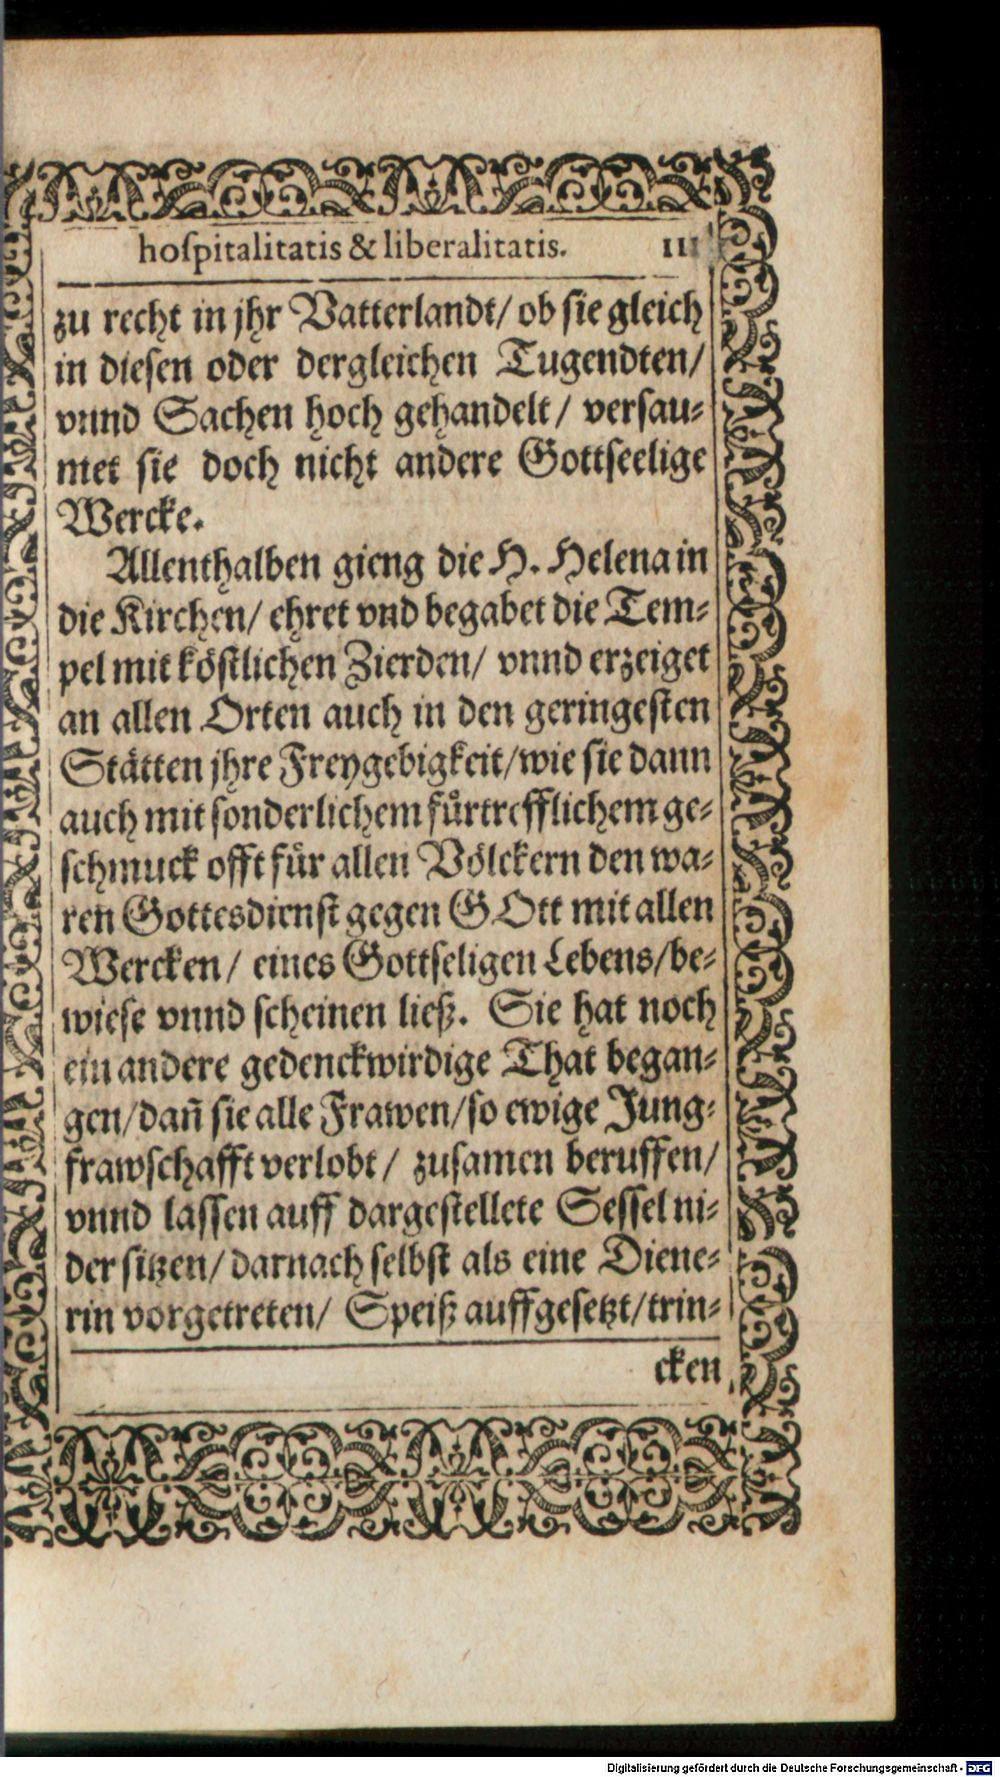 hoſpitalitatis & liberalitatis.
zu recht in jhr Vatterlandt/ ob ſie gleich
in dieſen oder dergleichen Tugendten/
vnnd Sachen hoch gehandelt/ verſau⸗
met ſie doch nicht andere Gottſeelige
Wercke.
Allenthalben gieng die H. Helena in
die Kirchen/ ehret vnd begabet die Tem⸗
pel mit köſtlichen Zierden/ vnnd erzeiget
an allen Orten auch in den geringeſten
Stätten jhre Freygebigkeit/wie ſie dann
auch mit ſonderlichem fürtrefflichem ge⸗
ſchmuck offt für allen Völckern den wa⸗
ren Gottesdienſt gegen GOtt mit allen
Wercken/ eines Gottſeligen Lebens/be⸗
wieſe vnnd ſcheinen ließ. Sie hat noch
ein andere gedenckwirdige That began⸗
gen/dañ ſie alle Frawen/ſo ewige Jung⸗
frawſchafft verlobt/ zuſamen beruffen/
vnnd laſſen auff dargeſtellete Seſſel ni⸗
der ſitzen/ darnach ſelbſt als eine Diene⸗
rin vorgetreten/ Speiß auffgeſetzt/trin⸗
cken
Digitalisierung gefördert durch die Deutsche Forschungsgemeinschaft - DFG